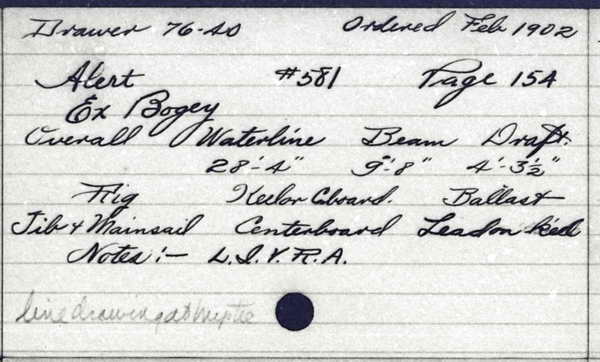 Drawer 76-40 Ordered Feb 1902
Alert #581 Page 154
Ex Bogey
Overall Waterline Beam Draft.
28'-4" 9'-8" 4'-3½"
Rig Keel or Cboard. Ballast
Jib & Mainsail Centerboard Lead on keel
Notes:- L.I.Y.R.A.
line drawing at Mystic